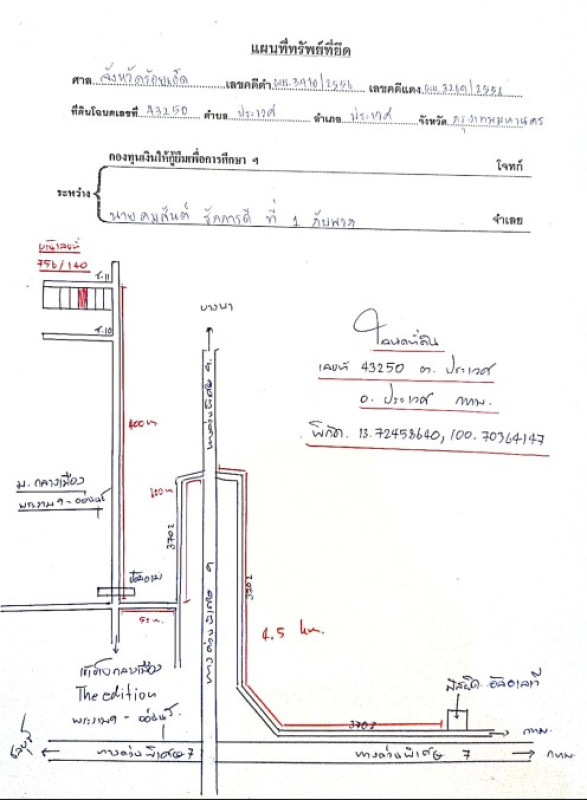 แผนที่ทรัพย์ที่ยึด
ศาล จังหวัดร้อยเอ็ด เลขคดีดำ ผบ.3910/2556 เลขคดีแดง ผบ.3269/2556
ที่ดินโฉนดเลขที่ 43250 ตำบล ประเวศ อำเภอ ประเวศ จังหวัด กรุงเทพมหานคร
กองทุนเงินให้กู้ยืมเพื่อการศึกษา ฯ โจทก์
ระหว่าง
นาย คมสันต์ ที่ 1 กับพวก จำเลย
บ้านเลขที่
756/140
ซ.11
ซ.10
บางนา
โฉนดที่ดิน
เลขที่ 43250 ต. ประเวศ
อ. ประเวศ กทม.
พิกัด. 13.72458640, 100.70364147
400 m
100 m
ม. กลางเมือง
พระราม 9 - อ่อนนุช
3702
3702
ป้อมยาม
50 m.
4.5 km.
The edition
พระราม 9 - อ่อนนุช
มัสยิด
3702
กทม.
ทางด่วนพิเศษ 7
ทางด่วนพิเศษ 7
กทม.